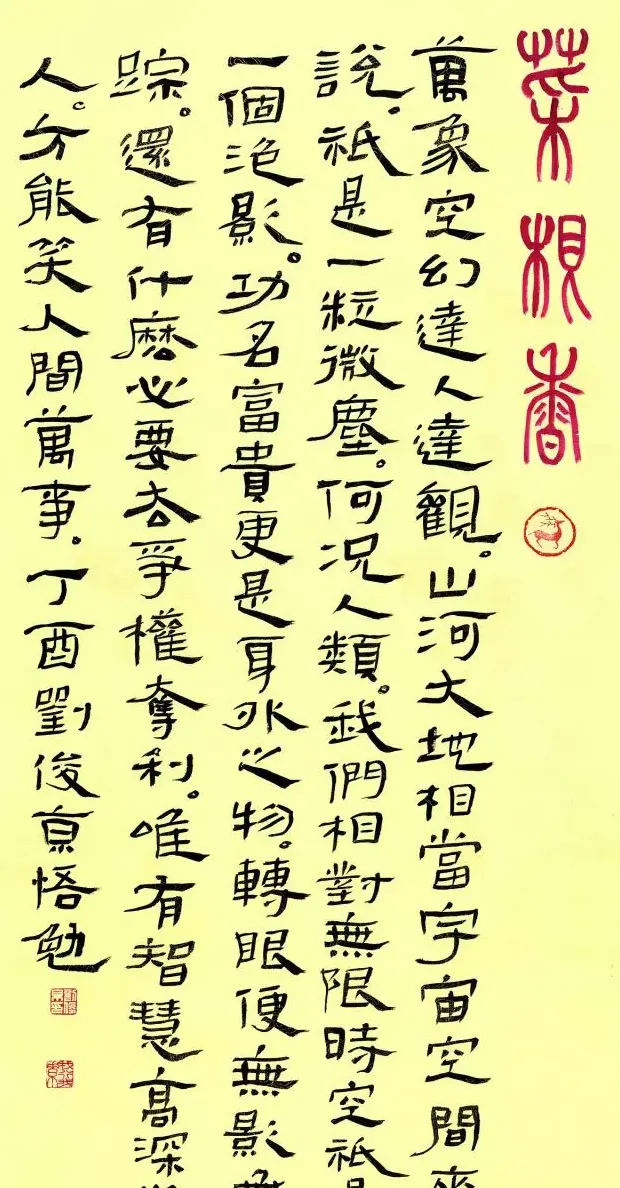 菜根香
萬象空幻達人達觀。山河大地相當宇宙空間來
說。祇是一粒微塵。何況人類。我們相對無限時空祇是
一個泡影。功名富貴更是身外之物。轉眼便無影無
踪。還有什麽必要去爭權奪利。唯有智慧高深
人。方能笑人間萬事。丁酉劉俊京悟勉